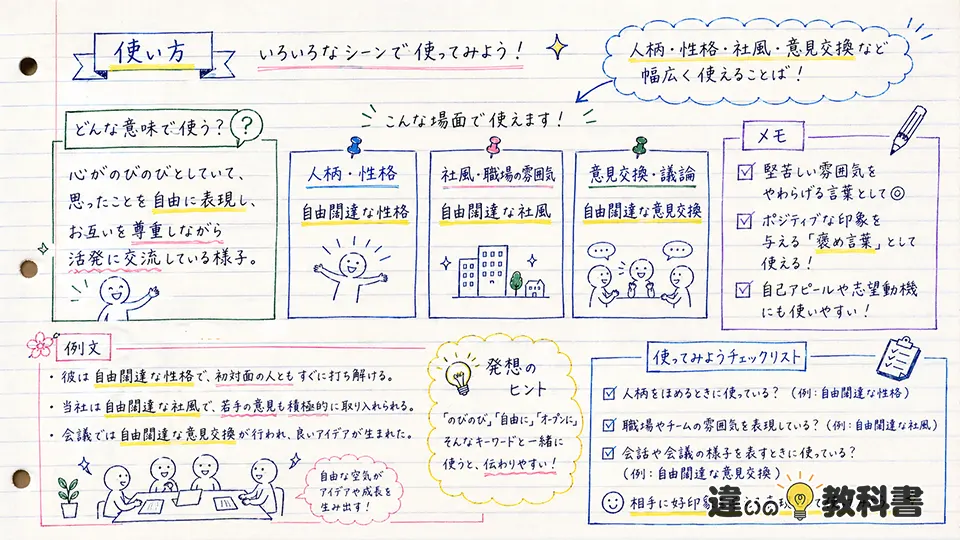 使い方
いろいろなシーンで使ってみよう！
人柄・性格・社風・意見交換など
幅広く使えることば！
どんな意味で使う？
?
心がのびのびとしていて、
思ったことを自由に表現し、
お互いを尊重しながら
活発に交流している様子。
こんな場面で使えます！
人柄・性格
自由闊達な性格
社風・職場の雰囲気
自由闊達な社風
意見交換・議論
自由闊達な意見交換
メモ
堅苦しい雰囲気を
やわらげる言葉として◎
ポジティブな印象を
与える「褒め言葉」として
使える！
自己アピールや志望動機
にも使いやすい！
例文
・彼は自由闊達な性格で、初対面の人ともすぐに打ち解ける。
・当社は自由闊達な社風で、若手の意見も積極的に取り入れられる。
・会議では自由闊達な意見交換が行われ、良いアイデアが生まれた。
自由な空気が
アイデアや成長を
生み出す！
発想の
ヒント
「のびのび」「自由に」「オープンに」
そんなキーワードと一緒に
使うと、伝わりやすい！
使ってみようチェックリスト
人柄をほめるときに使っている？（例：自由闊達な性格）
職場やチームの雰囲気を表現している？（例：自由闊達な社風）
会話や会議の様子を表すときに使っている？
（例：自由闊達な意見交換）
相手に好印象
違いの教科書